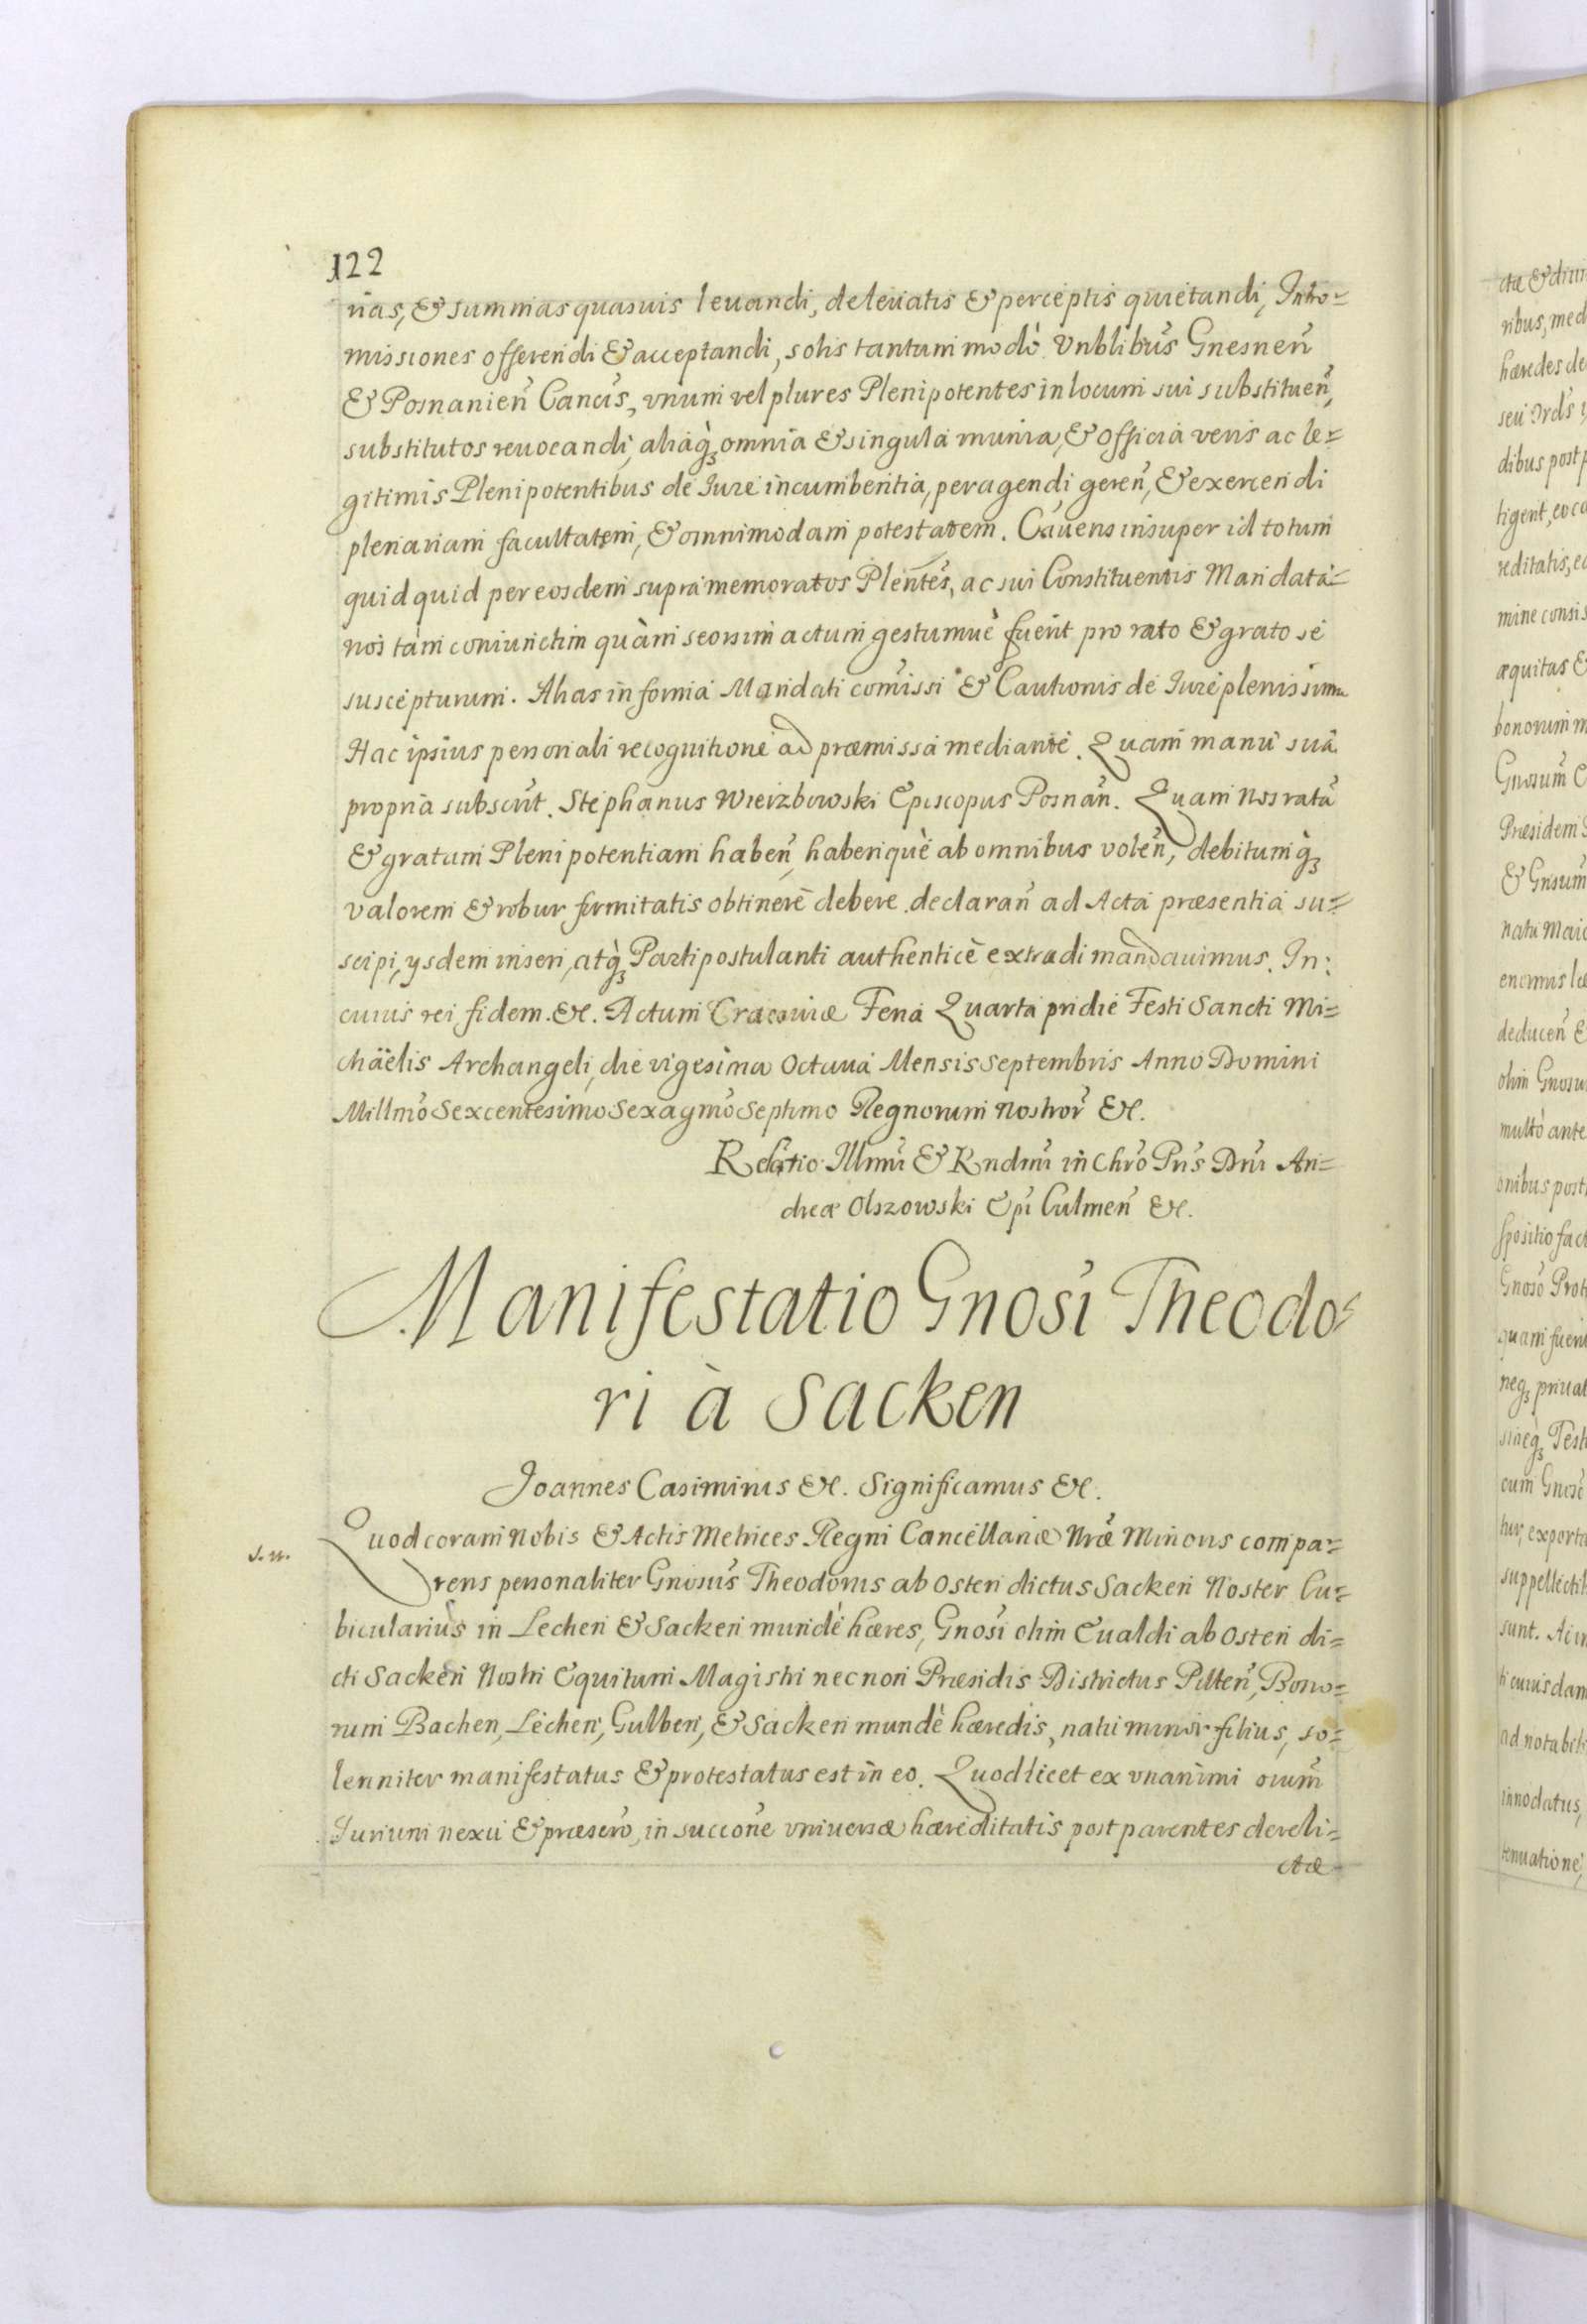 122
rias, & summas quasuis leuandi, de leuatis & perceptis quietandi, Intro=
missiones offerendi & acceptandi, solis tantum modò Vnblibus Gnesneñ
& Posnanieñ Cancis, vnum vel plures Plenipotentes in locum sui substitueñ,
substitutos reuocandi, aliaq̀ omnia & singula munia, & officia veris ac le=
gitimis Plenipotentibus de Iure incumbentia, peragendi, gereñ, & exercendi
plenariam facultatem, & omnimodam potestatem. Cauens insuper id totum
quid quid per eosdem supra memoratos Plentes, ac sui Constituentis Mandata=
rios tàm coniunctim quàm seorsim actum gestumuè fuerit pro rato & grato se
suscepturum. Alias in forma Mandati comissi & Cautionis de Iure plenissima
Hac ipsius personali recognitione ad præmissa mediante. Quam manu sua
propria subscrit. Stephanus Wierzbowski Episcopus Posnañ. Quam nos ratã
& gratam Plenipotentiam habeñ, haberiquè ab omnibus voleñ, debitumq̀
valorem & robur firmitatis obtinere debere declarañ ad Acta præsentia su=
scipi, ysdem inseri, atq̀ Parti postulanti authenticè extradi mandauimus. In:
cuius rei fidem. &c. Actum Cracouiæ Feria Quarta pridie Festi Sancti Mi=
chäelis Archangeli, die vigesima Octaua Mensis Septembris Anno Domini
Millmo Sexcentesimo Sexagmo Septimo Regnorum Nostror &c.
Relatio Illmi & Rndmi in Chro Pris Dni An=
dreæ Olszowski Epi Culmeñ &c.
Manifestatio Gnosi Theodo=
ri à Sacken
Joannes Casimirus &c. Significamus &c.
s. n.
Quod coram Nobis & Actis Metrices Regni Cancellariæ Nræ Minoris compa=
rens personaliter Gnosus Theodorus ab Osten dictus Sacken Noster Cu=
bicularius in Lechen & Sacken mundè hæres, Gnosi olim Eualdi ab Osten di=
cti Sacken Nostri Equitum Magistri necnon Præsidis Districtus Pilteñ, Bono=
rum Bachen, Lechen, Gulben, & Sacken mundè hæredis, natu minor filius, so=
lenniter manifestatus & protestatus est in eo. Quod licet ex vnanimi oium
Iurium nexu & præsero, in succone vniuersæ hæreditatis post parentes dereli=
ctæ